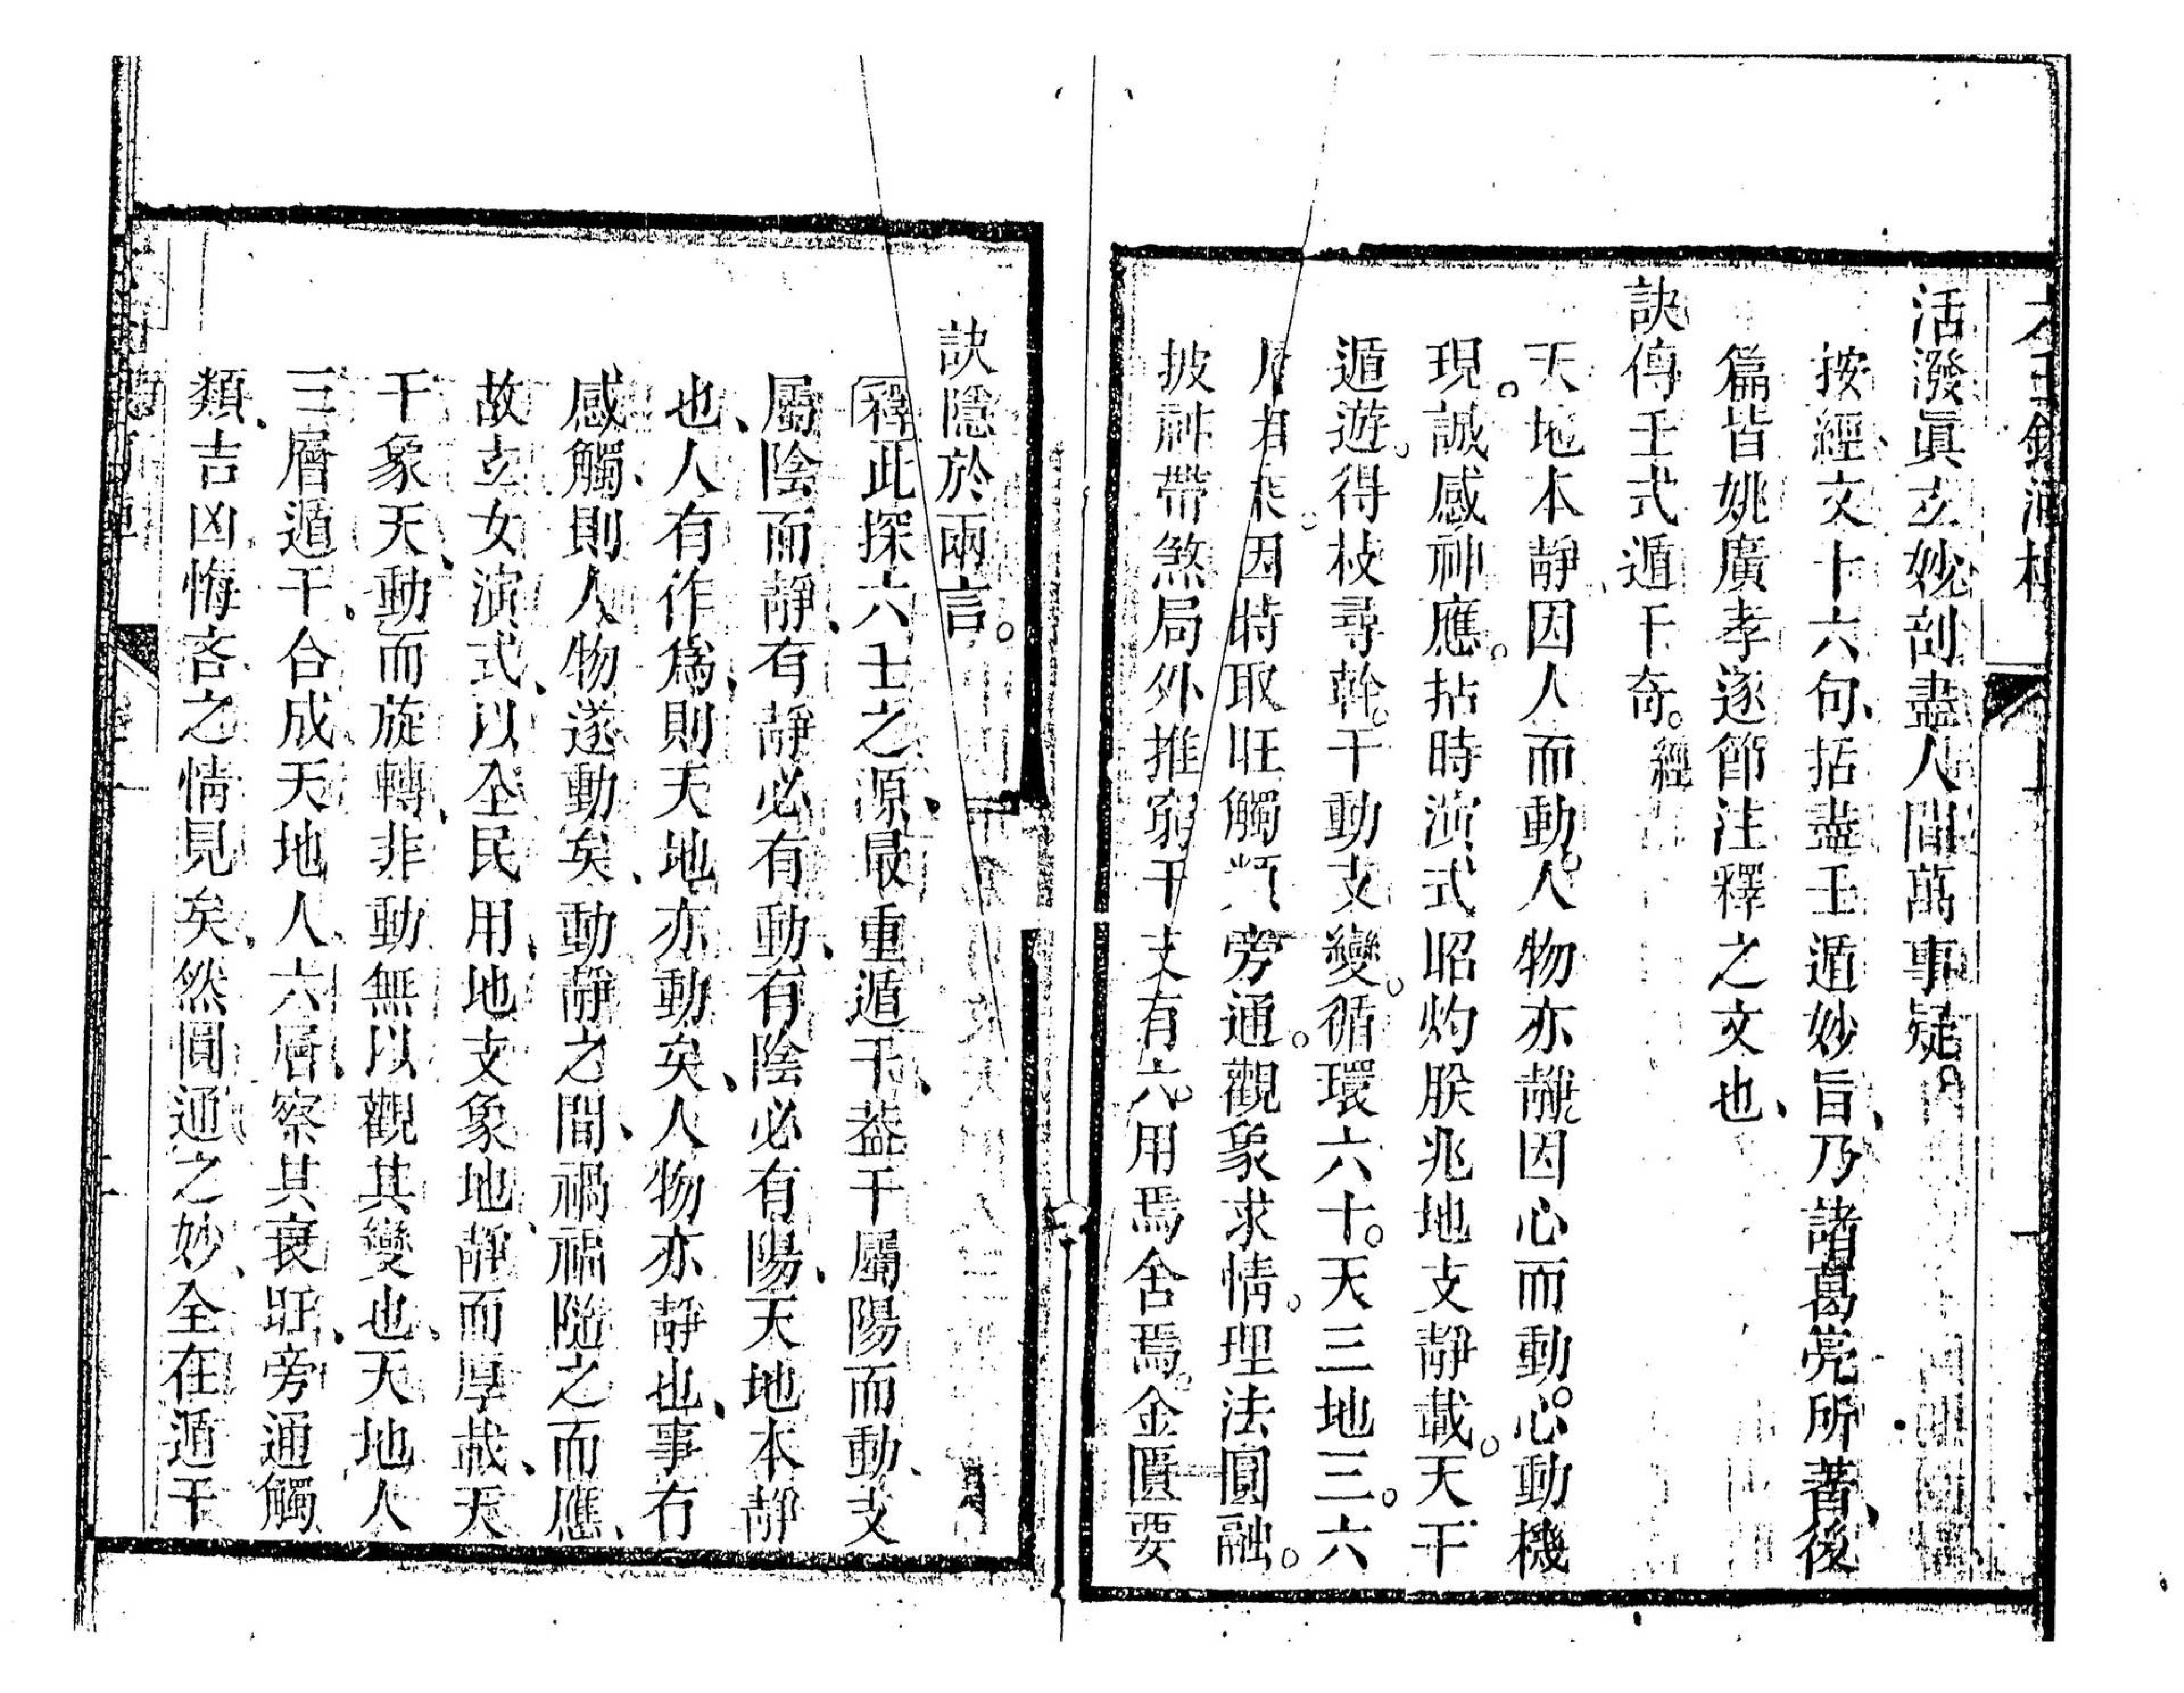 活潑眞玄妙剖盡人間萬事疑。
按經文十六句、括盡壬遁妙旨、乃諸葛亮所著、後
篇皆姚廣孝逐節注釋之文也、
訣傳壬式遁干奇。經
天地本靜因人而動。人物亦靜。因心而動。心動機
現。誠感神應。拈時演式昭灼朕兆地支靜載。天干
遁遊。得枝尋幹。干動支變。循環六十。天三地三。六
因時取旺觸類旁通。觀象求情。理法圓融。
披神帶煞局外推窮干支有六。用焉舍焉。金匱要
訣隱於兩言。
釋此探六壬之源、最重遁干、葢干屬陽而動、支
屬陰而靜、有靜必有動、有陰必有陽、天地本靜
也、人有作爲、則天地亦動矣、人物亦靜也、事有
感觸、則人物遂動矣、動靜之間、禍福隨之而應、
故玄女演式、以全民用、地支象地、靜而厚載、天
干象天、動而旋轉、非動無以觀其變也、天地人
三層遁干、合成天地人、六層、察其衰旺、旁通觸
類、吉凶悔吝之情見矣、然圓通之妙、全在遁干